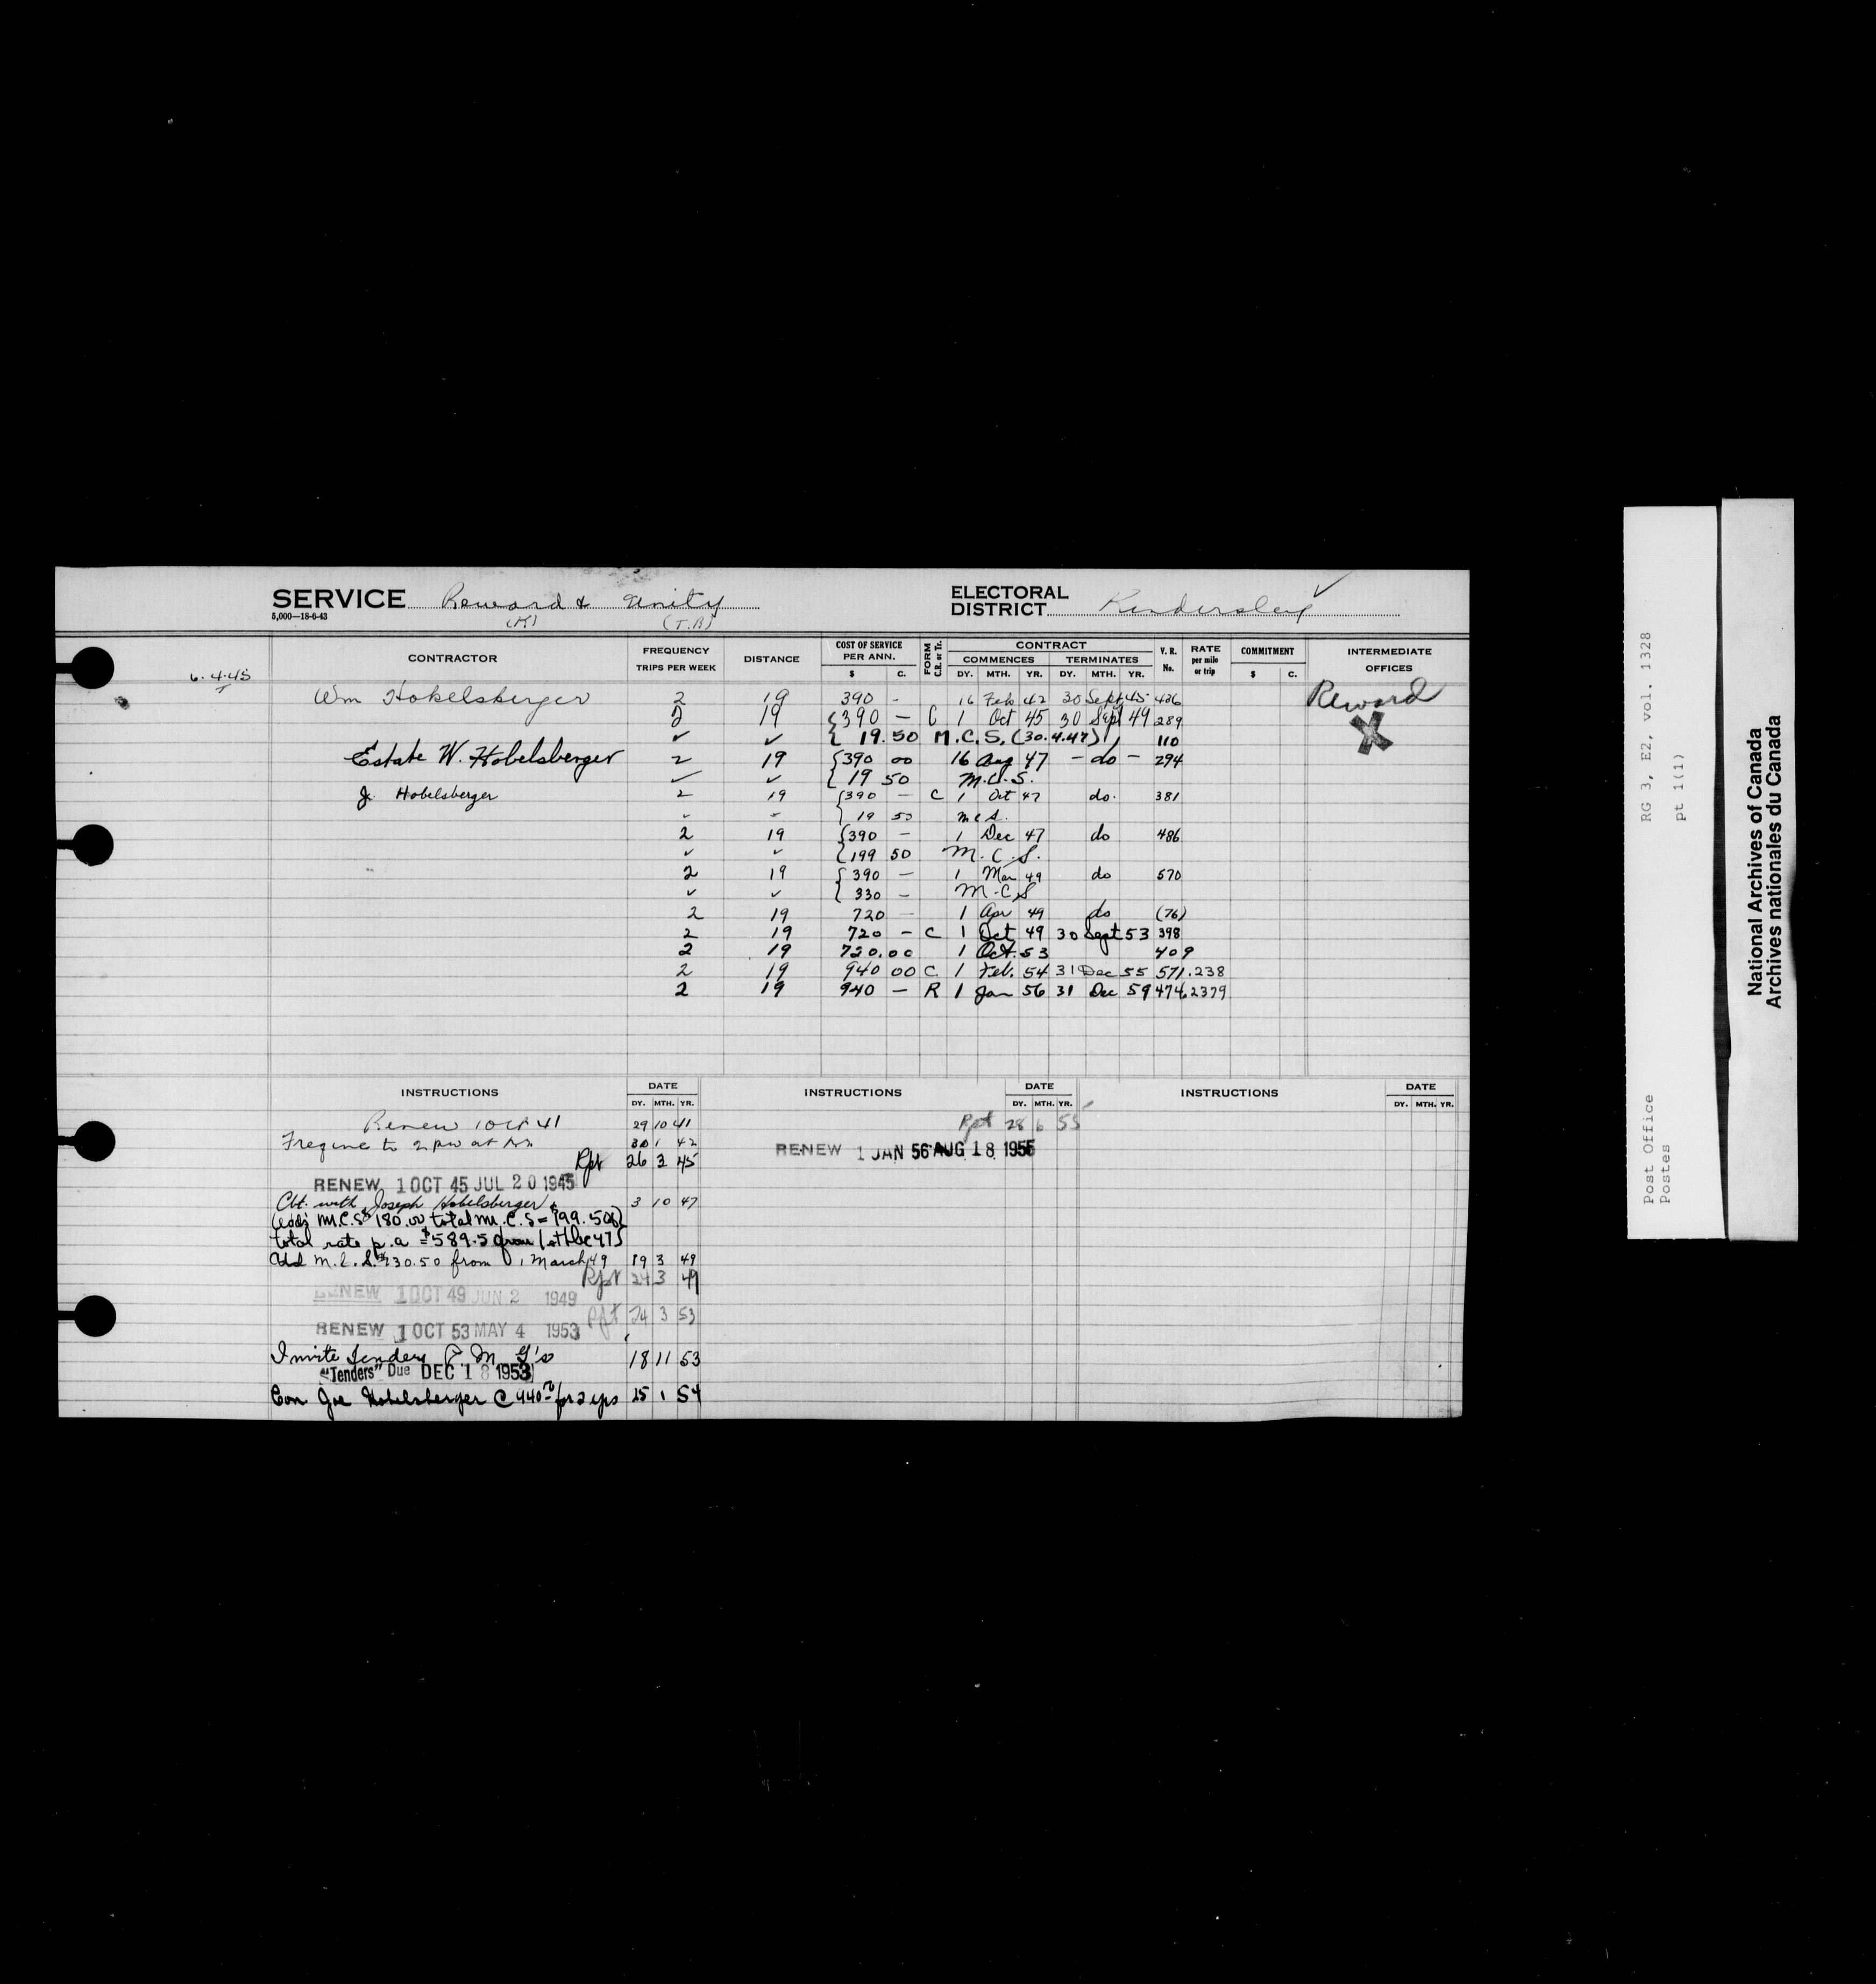 SERVICE Reward & Unity ELECTORAL DISTRICT Kindersley
5,000—18-6-43 (K) (T.B)
CONTRACTOR FREQUENCY TRIPS PER WEEK DISTANCE COST OF SERVICE PER ANN. $ C. FORM C.R. or Tr. CONTRACT COMMENCES DY. MTH. YR. TERMINATES DY. MTH. YR. V. R. No. RATE per mile or trip COMMITMENT $ C. INTERMEDIATE OFFICES
6.4.45
Wm Hobelsberger 2 19 390 - 16 Feb 42 30 Sept 45 436 Reward
2 19 390 — C 1 Oct 45 30 Sept 49 289 X
✓ ✓ 19.50 M.C.S. (30.4.47) 110
Estate W. Hobelsberger 2 19 390 00 16 Aug 47 - do - 294
✓ ✓ 19 50 M.C.S.
J. Hobelsberger 2 19 390 — C 1 Oct 47 do. 381
19 50 mcs.
2 19 390 — 1 Dec 47 do 486
✓ ✓ 199 50 M.C.S.
2 19 390 — 1 Mar 49 do 570
✓ ✓ 330 — M.C.S
2 19 720 — 1 Apr 49 do (76)
2 19 720 — C 1 Oct 49 30 Sept 53 398
2 19 720.00 1 Oct. 53 409
2 19 940 00 C 1 Feb. 54 31 Dec 55 571 .238
2 19 940 — R 1 Jan 56 31 Dec 59 474 .2379
INSTRUCTIONS DATE DY. MTH. YR. INSTRUCTIONS DATE DY. MTH. YR. INSTRUCTIONS DATE DY. MTH. YR.
Renew 1 Oct 41 29 10 41 Rpt 28 6 55
to 2 pw at 30 1 42 RENEW 1 JAN 56 AUG 18 1955
Rpt 26 3 45
RENEW 1 OCT 45 JUL 20 1945
Cbt. with Joseph Hobelsberger 3 10 47
(add'l M.C.S $180.00 total M.C.S = 199.50)
total rate p.a = $589.50 from 1st Dec 47)
Add M.C.S. $130.50 from 1 March 49 19 3 49
Rpt 24 3 49
RENEW 1 OCT 49 JUN 2 1949
Rpt 24 3 53
RENEW 1 OCT 53 MAY 4 1953
Invite Tenders P.M. G's 18 11 53
"Tenders" Due DEC 18 1953
Con Joe Hobelsberger @ 940 for 2 yrs 25 1 54
Post Office RG 3, E2, vol. 1328
Postes pt 1(1)
National Archives of Canada
Archives nationales du Canada